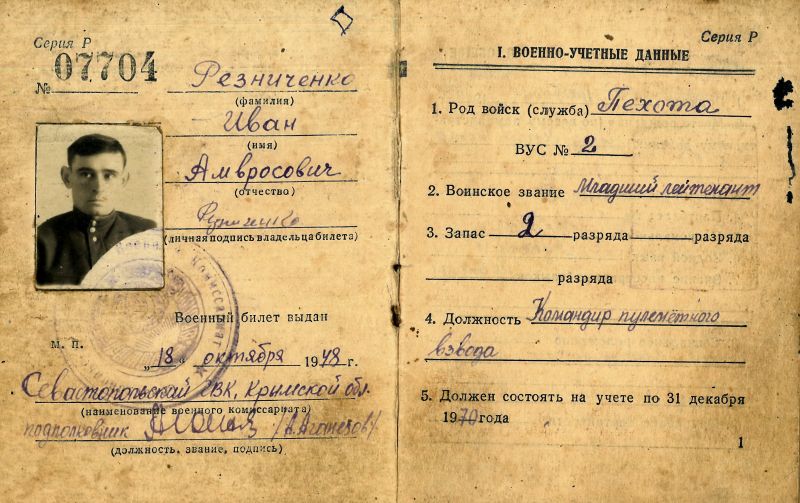 Серия Р
№ 07704
Резниченко
(фамилия)
Иван
(имя)
Амвросович
(отчество)
(личная подпись владельца билета)
Военный билет выдан
М. П.
„18 " октября 1948 г.
Севастопольский ГВК, Крымской обл.
(наименование военного комиссариата)
подполковник
(должность, звание, подпись)
Серия Р
I. ВОЕННО-УЧЕТНЫЕ ДАННЫЕ
1. Род войск (служба) Пехота
ВУС № 2
2. Воинское звание Младший лейтенант
3. Запас 2 разряда разряда
разряда
4. Должность Командир пулемётного
взвода
5. Должен состоять на учете по 31 декабря
1970 года
1